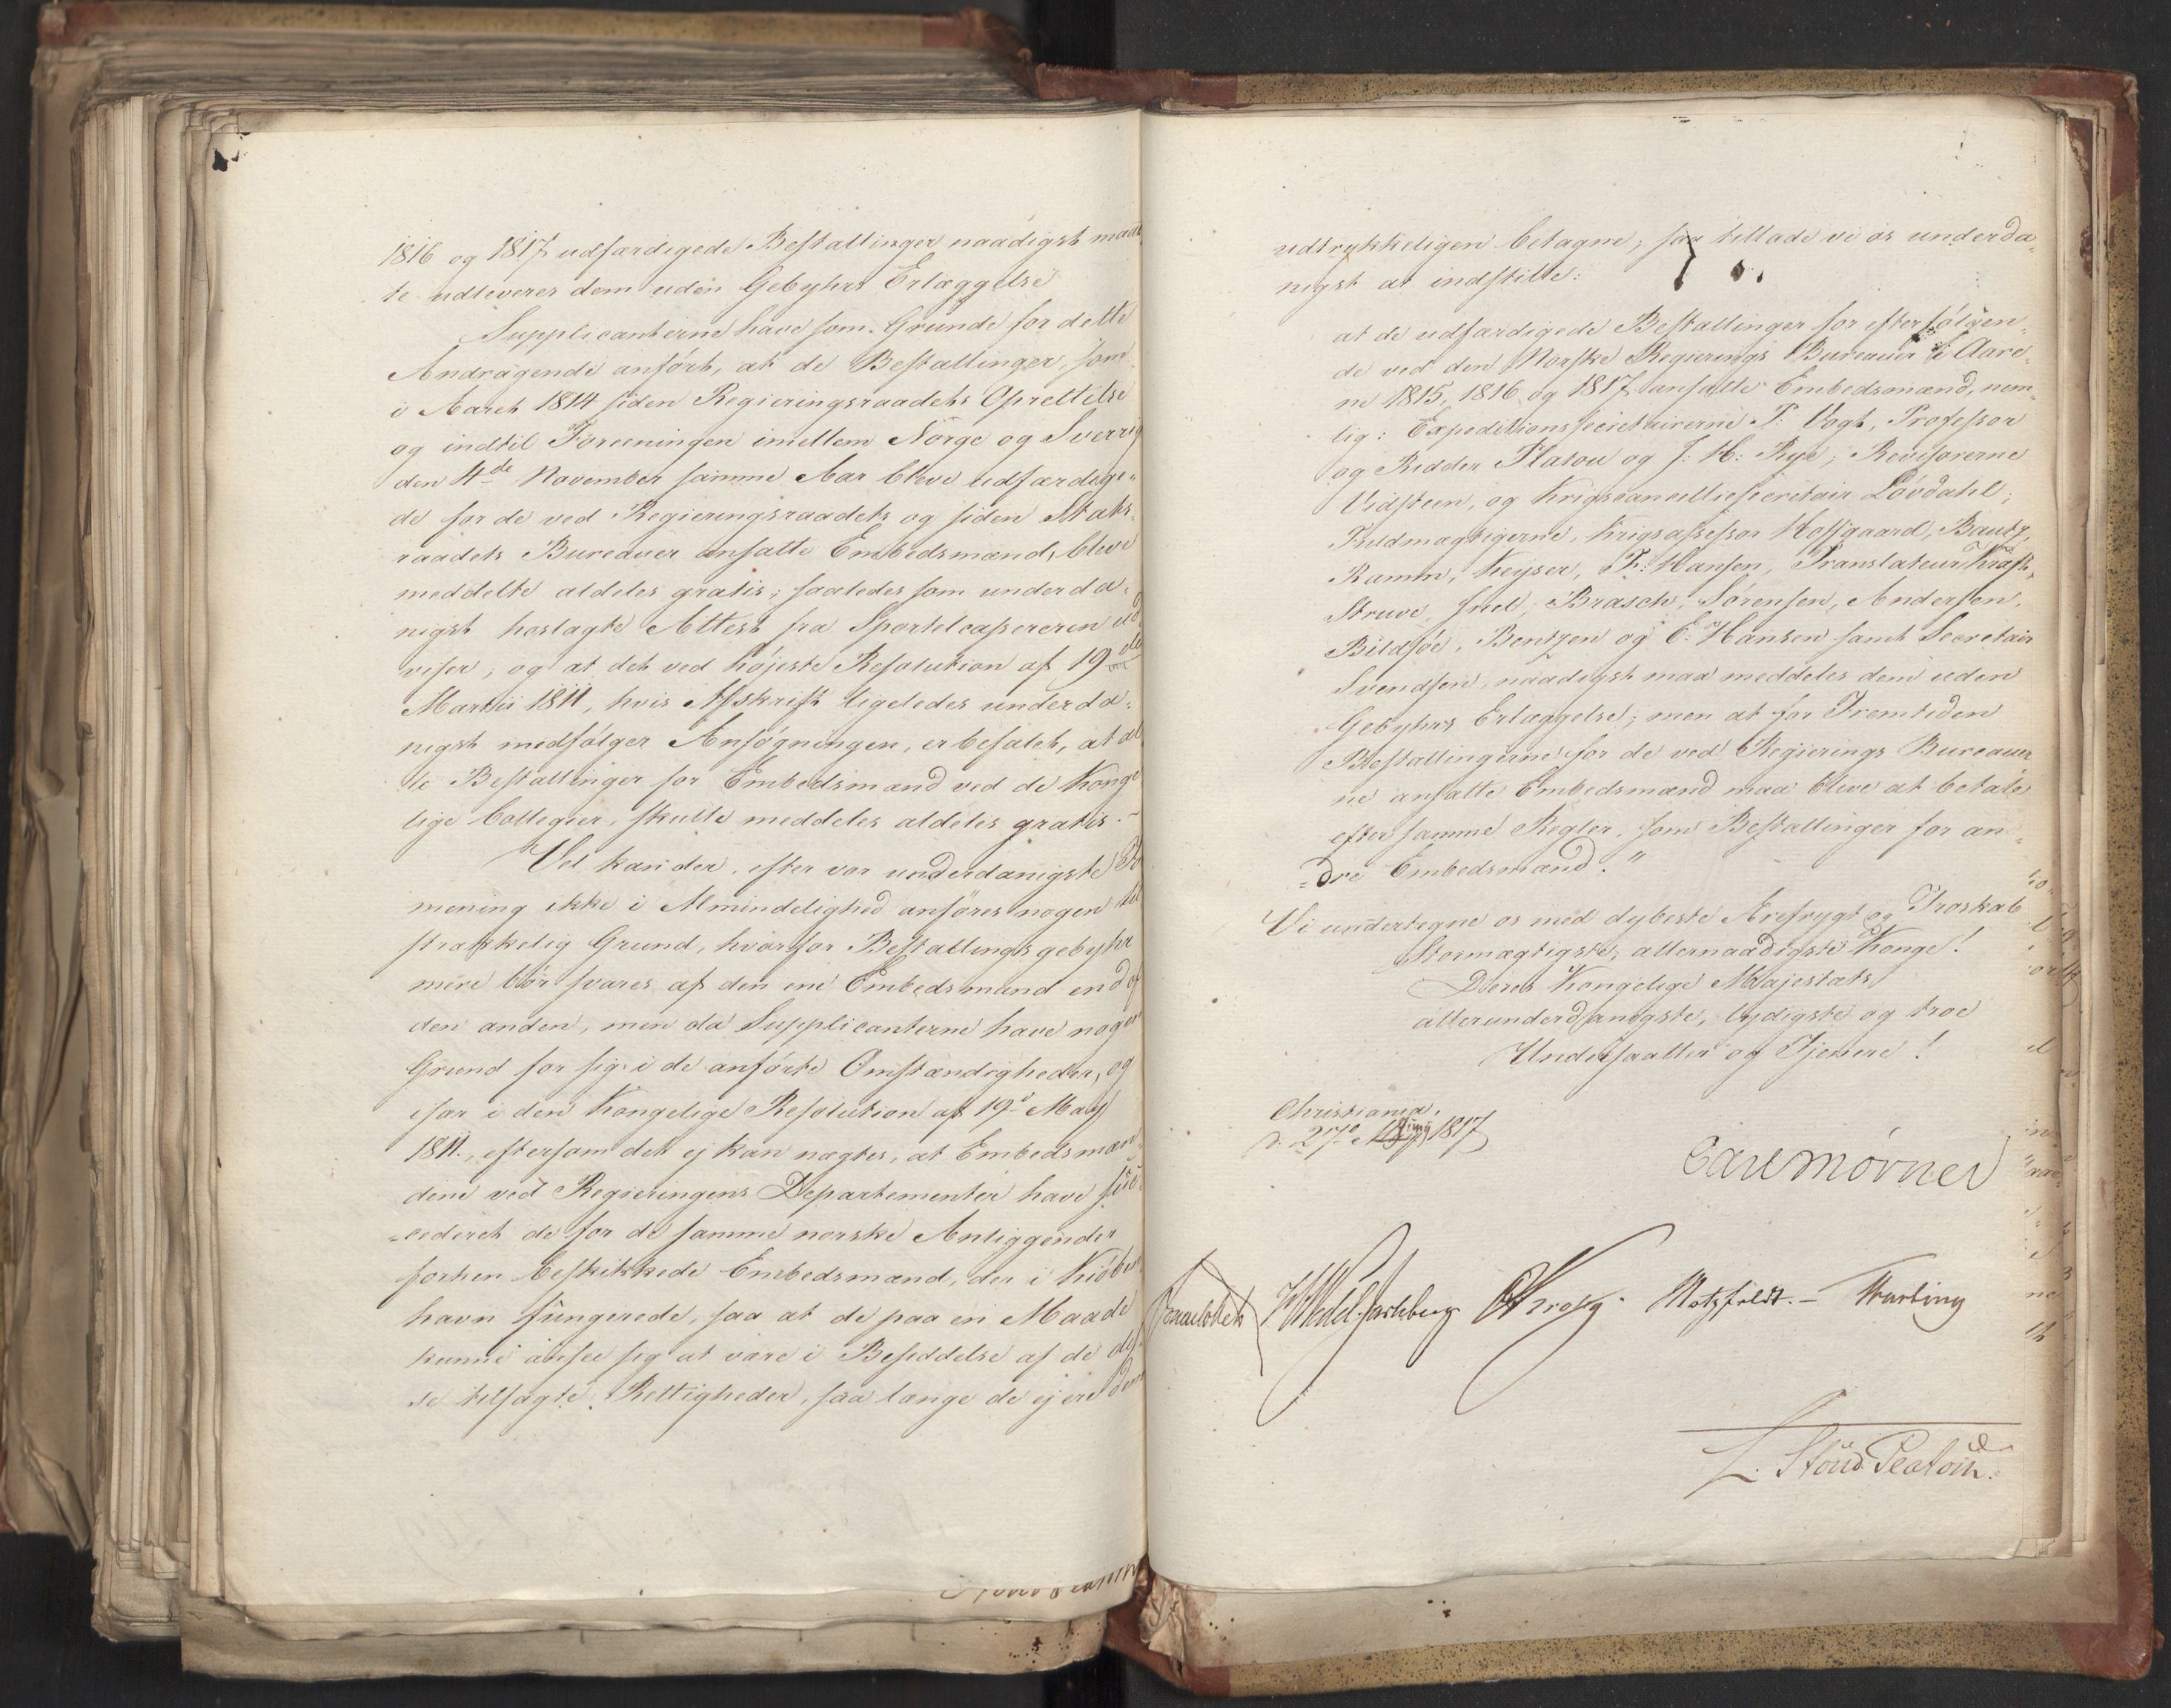 1816 og 1817 udfærdigede Bestallinger naadigst maat
te udleveres dem uden Gebyhrs Erlæggelse
Supplicanterne have som Grunde for dette
Andragende anført, at de Bestallinger, som
i Aaret 1814 siden Regieringsraadets Oprettelse
og indtil Foreeningen imellem Norge og Sverrig
den 4de November samme Aar bleve udfærdige-
de for de ved Regieringsraadets og siden Stats-
raadets Bureauer ansatte Embedsmænd, bleve
meddelte aldeles gratis, saaledes som underda-
nigst hoslagte Attest fra Sportelcassereren ud
viser, og at det ved høieste Resolution af 19de
Martii 1811, hvis Afskrift ligeledes underda-
nigst medfølger Ansøgningen, er befalet, at al
le Bestallinger for Embedsmænd ved de Konge
lige Collegier, skulle meddeles aldeles gratis.-
Vel kan der, efter vor underdanigste
mening ikke i Almindelighed anføres nogen til
strækkelig Grund, hvorfor Bestallingsgebyhr
mere bør svares af den ene Embedsmand end af
den anden, men da Supplicanterne have nogen
Grund for sig i de anførte Omstændigheder, og
især i den Kongelige Resolution af 19de May
1811, eftersom det ej kan nægtes, at Embedsmæn
dene ved Regieringens Departementer have suc
=cederet de for de samme norske Anliggender
forhen beskikkede Embedsmænd, der i Kiøben
havn fungerede, saa at de paa en Maade
kunne ansee sig at være i Besiddelse af de dis
se tilsagte Rettigheder, saa længe de ej ere dem
udtrykkeligen betagne, saa tillade vi os underda-
nigst at indstille:
at de udfærdigede Bestallinger for efterfølgen-
de ved den Norske Regierings Bureauer i Aare-
ne 1815, 1816 og 1817 ansatte Embedsmænd, nem-
lig: Expeditionssecretairerne P: Vogt, Professor
og Ridder Platou og J: H: Rye, Revisorerne
Vidsteen, og Krigscancelliesecretair Løvdahl;
Fuldmægtigerne, Krigsassessor Hoffgaard, Bautz,
Ramm, Keyser, F: Hansen, Translateur Kraft,
Struve, Juel, Brasch, Sørensen, Andersen,
Bildsøe, Bentzen og C: Hansen samt Secretair
Svendsen, naadigst maa meddeles dem uden
Gebyhrs Erlæggelse; men at for Fremtiden
Bestallingerne for de ved Regierings Bureauer
ne ansatte Embedsmænd maa blive at betale
efter samme Regler, som Bestallinger for an-
=dre Embedsmænd."
Vi undertegne os med dybeste Ærefrygt og Troskab
Stormægtigste, allernaadigste Konge!
Deres Kongelige Majestæts
allerunderdanigste, lydigste og troe
Undersaatter og Tjenere!
Christiania,
d: 27de 1817
Carl Mörner
Sommerfeldt HWedel-Jarlsberg CKrogh. Motzfeldt.- Treschow
L. Stoud Platou.